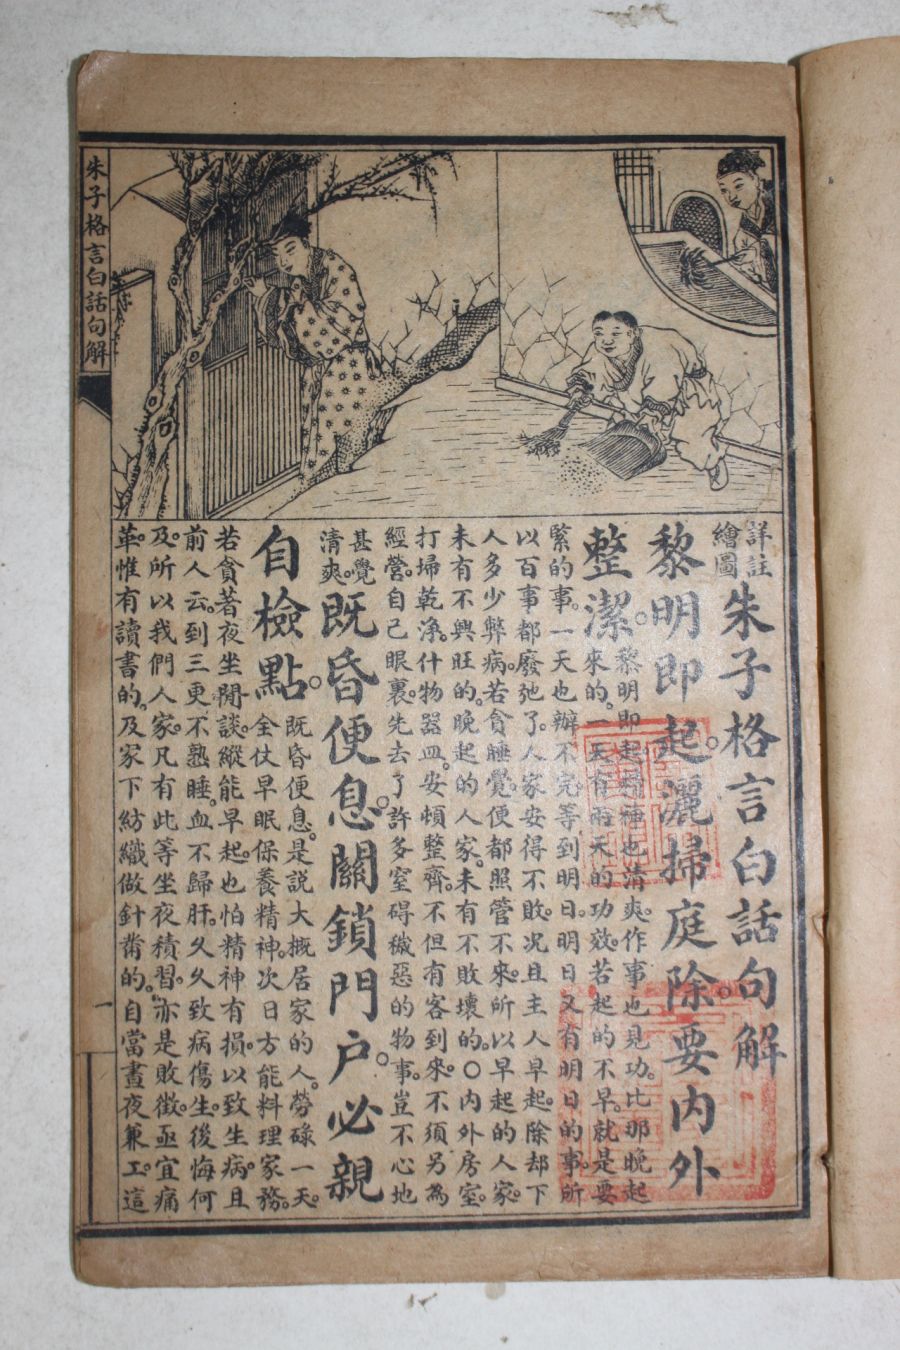 詳註
繪圖
朱子格言白話句解
黎明即起。灑掃庭除。要內外
整潔。
黎明即起。精神也清爽。作事也見功。比那晚起
來的。一天有兩天的功效。若起的不早。就是要
緊的事。一天也辦不完。等到明日。明日又有明日的事。所
以百事都廢弛了。人家安得不敗。况且主人早起。除却下
人多少弊病。若貪睡覺。便都照管不來。所以早起的人家。
未有不興旺的。晚起的人家。未有不敗壞的。〇內外房室。
打掃乾淨。什物器皿。安頓整齊。不但有客到來。不須另為
經營。自己眼裏。先去了許多窒碍穢惡的物事。豈不心地
甚覺
清爽。
既昏便息。關鎖門户。必親
自檢點。
既昏便息。是說大概居家的人。勞碌一天。
全仗早眠保養精神。次日方能料理家務。
若貪著夜坐閒談。縱能早起。也怕精神有損。以致生病。且
前人云。到三更不熟睡。血不歸肝。久久致病傷生。後悔何
及。所以我們人家。凡有此等坐夜積習。亦是敗徵。亟宜痛
革。惟有讀書的。及家下紡織做針黹的。自當晝夜兼工。這
朱子格言白話句解
一